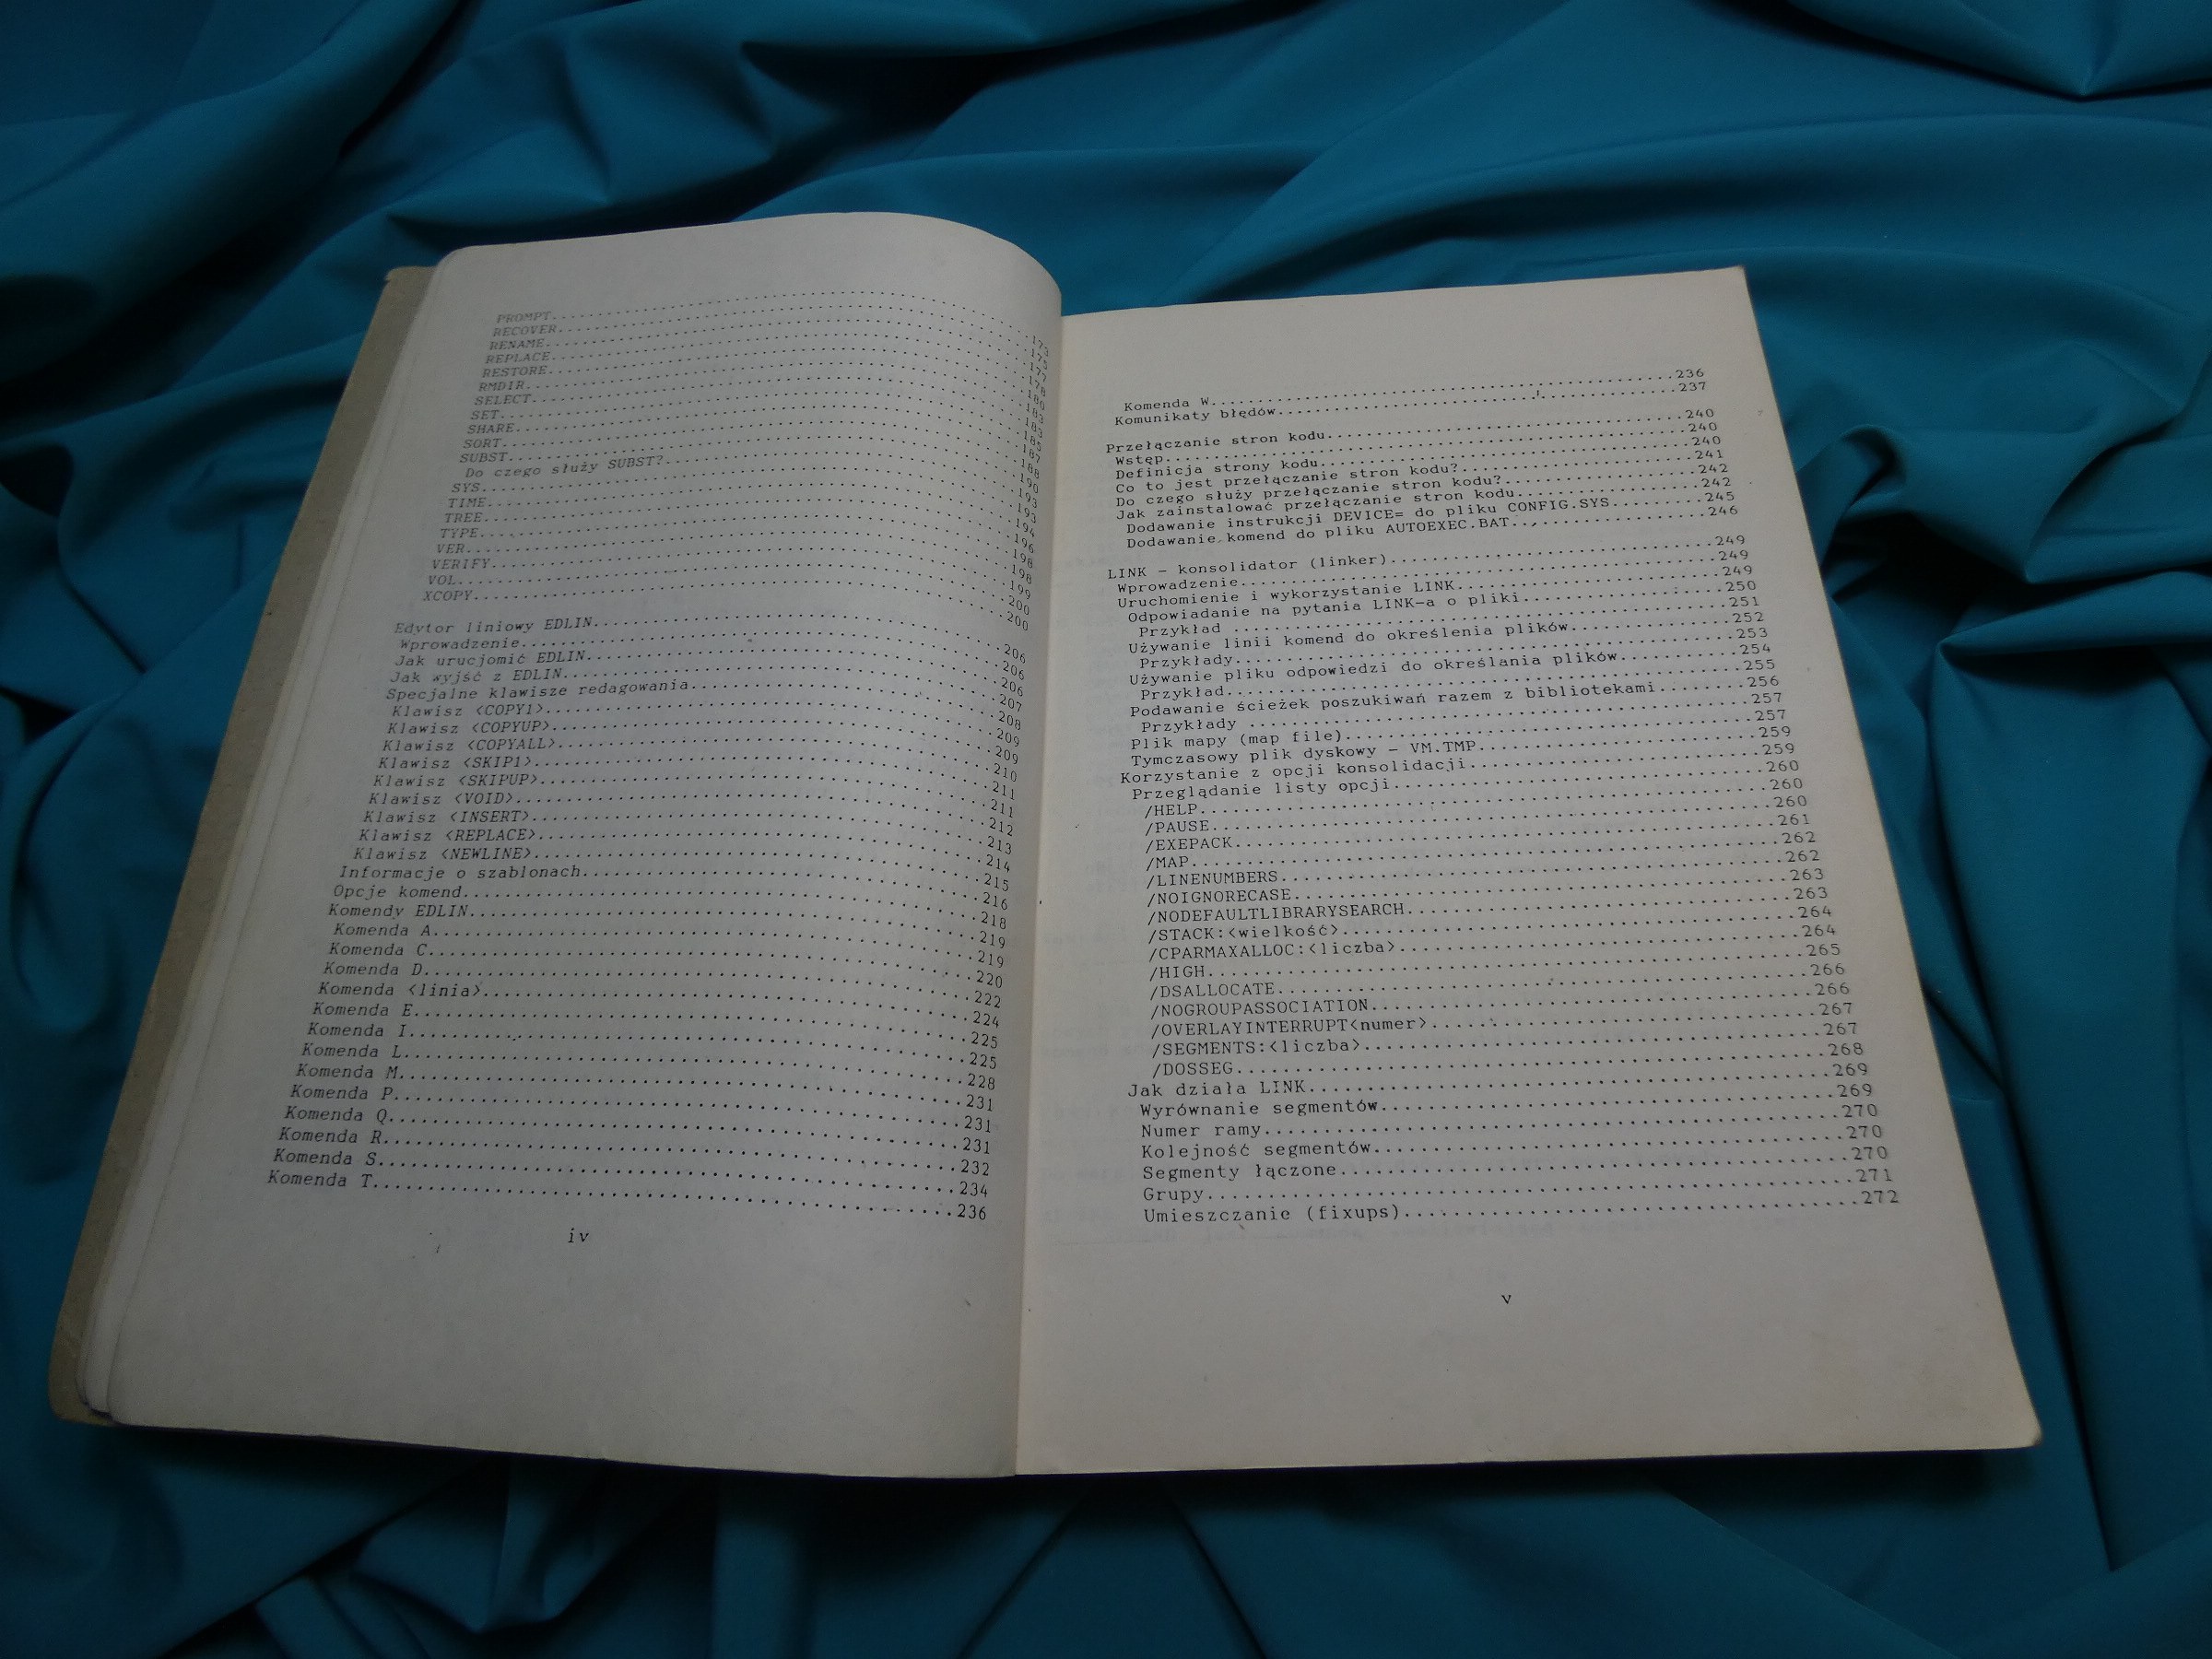 PROMPT...173
RECOVER...175
RENAME...177
REPLACE...178
RESTORE...180
RMDIR...183
SELECT...183
SET...185
SHARE...187
SORT...188
SUBST...190
Do czego służy SUBST?...193
SYS...193
TIME...194
TREE...196
TYPE...198
VER...198
VERIFY...199
VOL...200
XCOPY...200
Edytor liniowy EDLIN...206
Wprowadzenie...206
Jak urucjomić EDLIN...206
Jak wyjść z EDLIN...207
Specjalne klawisze redagowania...208
Klawisz <COPY1>...209
Klawisz <COPYUP>...209
Klawisz <COPYALL>...210
Klawisz <SKIP1>...211
Klawisz <SKIPUP>...211
Klawisz <VOID>...212
Klawisz <INSERT>...213
Klawisz <REPLACE>...214
Klawisz <NEWLINE>...215
Informacje o szablonach...216
Opcje komend...218
Komendy EDLIN...219
Komenda A...219
Komenda C...220
Komenda D...222
Komenda <linia>...224
Komenda E...225
Komenda I...225
Komenda L...228
Komenda M...231
Komenda P...231
Komenda Q...231
Komenda R...232
Komenda S...234
Komenda T...236
iv
Komenda W...236
Komunikaty błędów...237
Przełączanie stron kodu...240
Wstęp...240
Definicja strony kodu...240
Co to jest przełączanie stron kodu?...241
Do czego służy przełączanie stron kodu?...242
Jak zainstalować przełączanie stron kodu...242
Dodawanie instrukcji DEVICE= do pliku CONFIG.SYS...245
Dodawanie komend do pliku AUTOEXEC.BAT...246
LINK - konsolidator (linker)...249
Wprowadzenie...249
Uruchomienie i wykorzystanie LINK...249
Odpowiadanie na pytania LINK-a o pliki...250
Przykład ...251
Używanie linii komend do określenia plików...252
Przykłady...253
Używanie pliku odpowiedzi do określania plików...254
Przykład...255
Podawanie ścieżek poszukiwań razem z bibliotekami...256
Przykłady ...257
Plik mapy (map file)...257
Tymczasowy plik dyskowy - VM.TMP...259
Korzystanie z opcji konsolidacji...259
Przeglądanie listy opcji...260
/HELP...260
/PAUSE...260
/EXEPACK...261
/MAP...262
/LINENUMBERS...262
/NOIGNORECASE...263
/NODEFAULTLIBRARYSEARCH...263
/STACK:<wielkość>...264
/CPARMAXALLOC:<liczba>...264
/HIGH...265
/DSALLOCATE...266
/NOGROUPASSOCIATION...266
/OVERLAYINTERRUPT<numer>...267
/SEGMENTS:<liczba>...267
/DOSSEG...268
Jak działa LINK...269
Wyrównanie segmentów...269
Numer ramy...270
Kolejność segmentów...270
Segmenty łączone...270
Grupy...271
Umieszczanie (fixups)...272
v